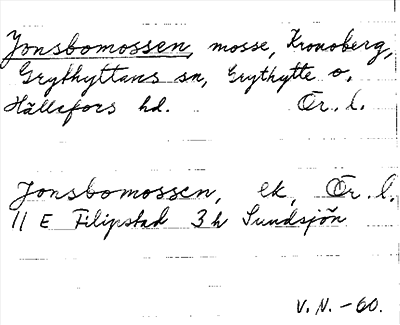 Jonsbomossen, mosse, Kronoberg,
Grythyttans sn, Grythytte o.
Hällefors hd. Ör. l.
Jonsbomossen, ek, Ör. l.
11 E Filipstad 3 h Sundsjön
V. N. - 60.